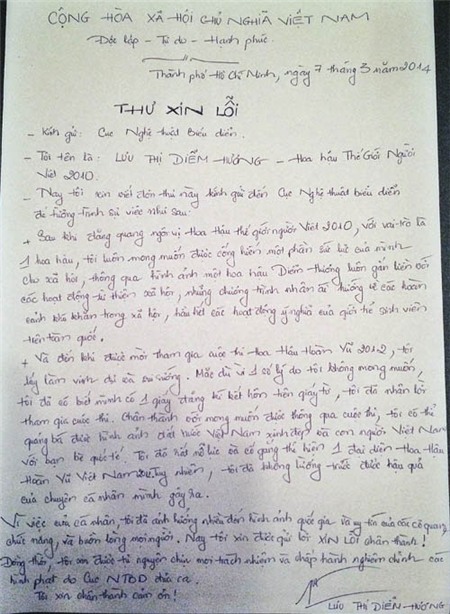 CỘNG HÒA XÃ HỘI CHỦ NGHĨA VIỆT NAM
Độc lập - Tự do - Hạnh phúc.
Thành phố Hồ Chí Minh, ngày 7 tháng 3 năm 2014
THƯ XIN LỖI
- Kính gửi: Cục Nghệ thuật Biểu diễn.
- Tôi tên là: LƯU THỊ DIỄM HƯƠNG - Hoa hậu Thế Giới Người
Việt 2010.
- Nay tôi xin viết đơn thư này kính gửi đến Cục Nghệ thuật biểu diễn
để tường trình sự việc như sau:
+ Sau khi đăng quang ngôi vị Hoa Hậu thế giới người Việt 2010, với vai trò là
1 hoa hậu, tôi luôn mong muốn được cống hiến một phần sức lực của mình
cho xã hội, thông qua hình ảnh một hoa hậu Diễm Hương luôn gắn liền với
các hoạt động từ thiện xã hội, những chương trình nhân ái hướng về các hoàn
cảnh khó khăn trong xã hội, hầu hết các hoạt động ý nghĩa của giới trẻ sinh viên
trên toàn quốc.
+ Và đến khi được mời tham gia cuộc thi Hoa Hậu Hoàn Vũ 2012, tôi
lấy làm vinh dự và vui sướng. Mặc dù vì 1 số lý do tôi không mong muốn,
tôi đã có biết mình có 1 giấy đăng kí kết hôn trên giấy tờ, tôi đã nhận lời
tham gia cuộc thi. Chân thành với mong muốn được thông qua cuộc thi, tôi có thể
quảng bá được hình ảnh đất nước Việt Nam xinh đẹp và con người Việt Nam
với bạn bè quốc tế. Tôi đã hết nỗ lực và cố gắng thể hiện 1 đại diện Hoa Hậu
Hoàn Vũ Việt Nam 2012. Tuy nhiên, tôi đã không lường trước được hậu quả
của chuyện cá nhân mình gây ra.
Vì việc của cá nhân, tôi đã ảnh hưởng nhiều đến hình ảnh quốc gia và uy tín của các cơ quan
chức năng, và buồn lòng mọi người. Nay tôi xin được gửi lời XIN LỖI chân thành!
Đồng thời, tôi xin được tự nguyện chịu mọi trách nhiệm và chấp hành nghiêm chỉnh các
hình phạt do Cục NTBD đưa ra.
Tôi xin chân thành cảm ơn!
LƯU THỊ DIỄM HƯƠNG